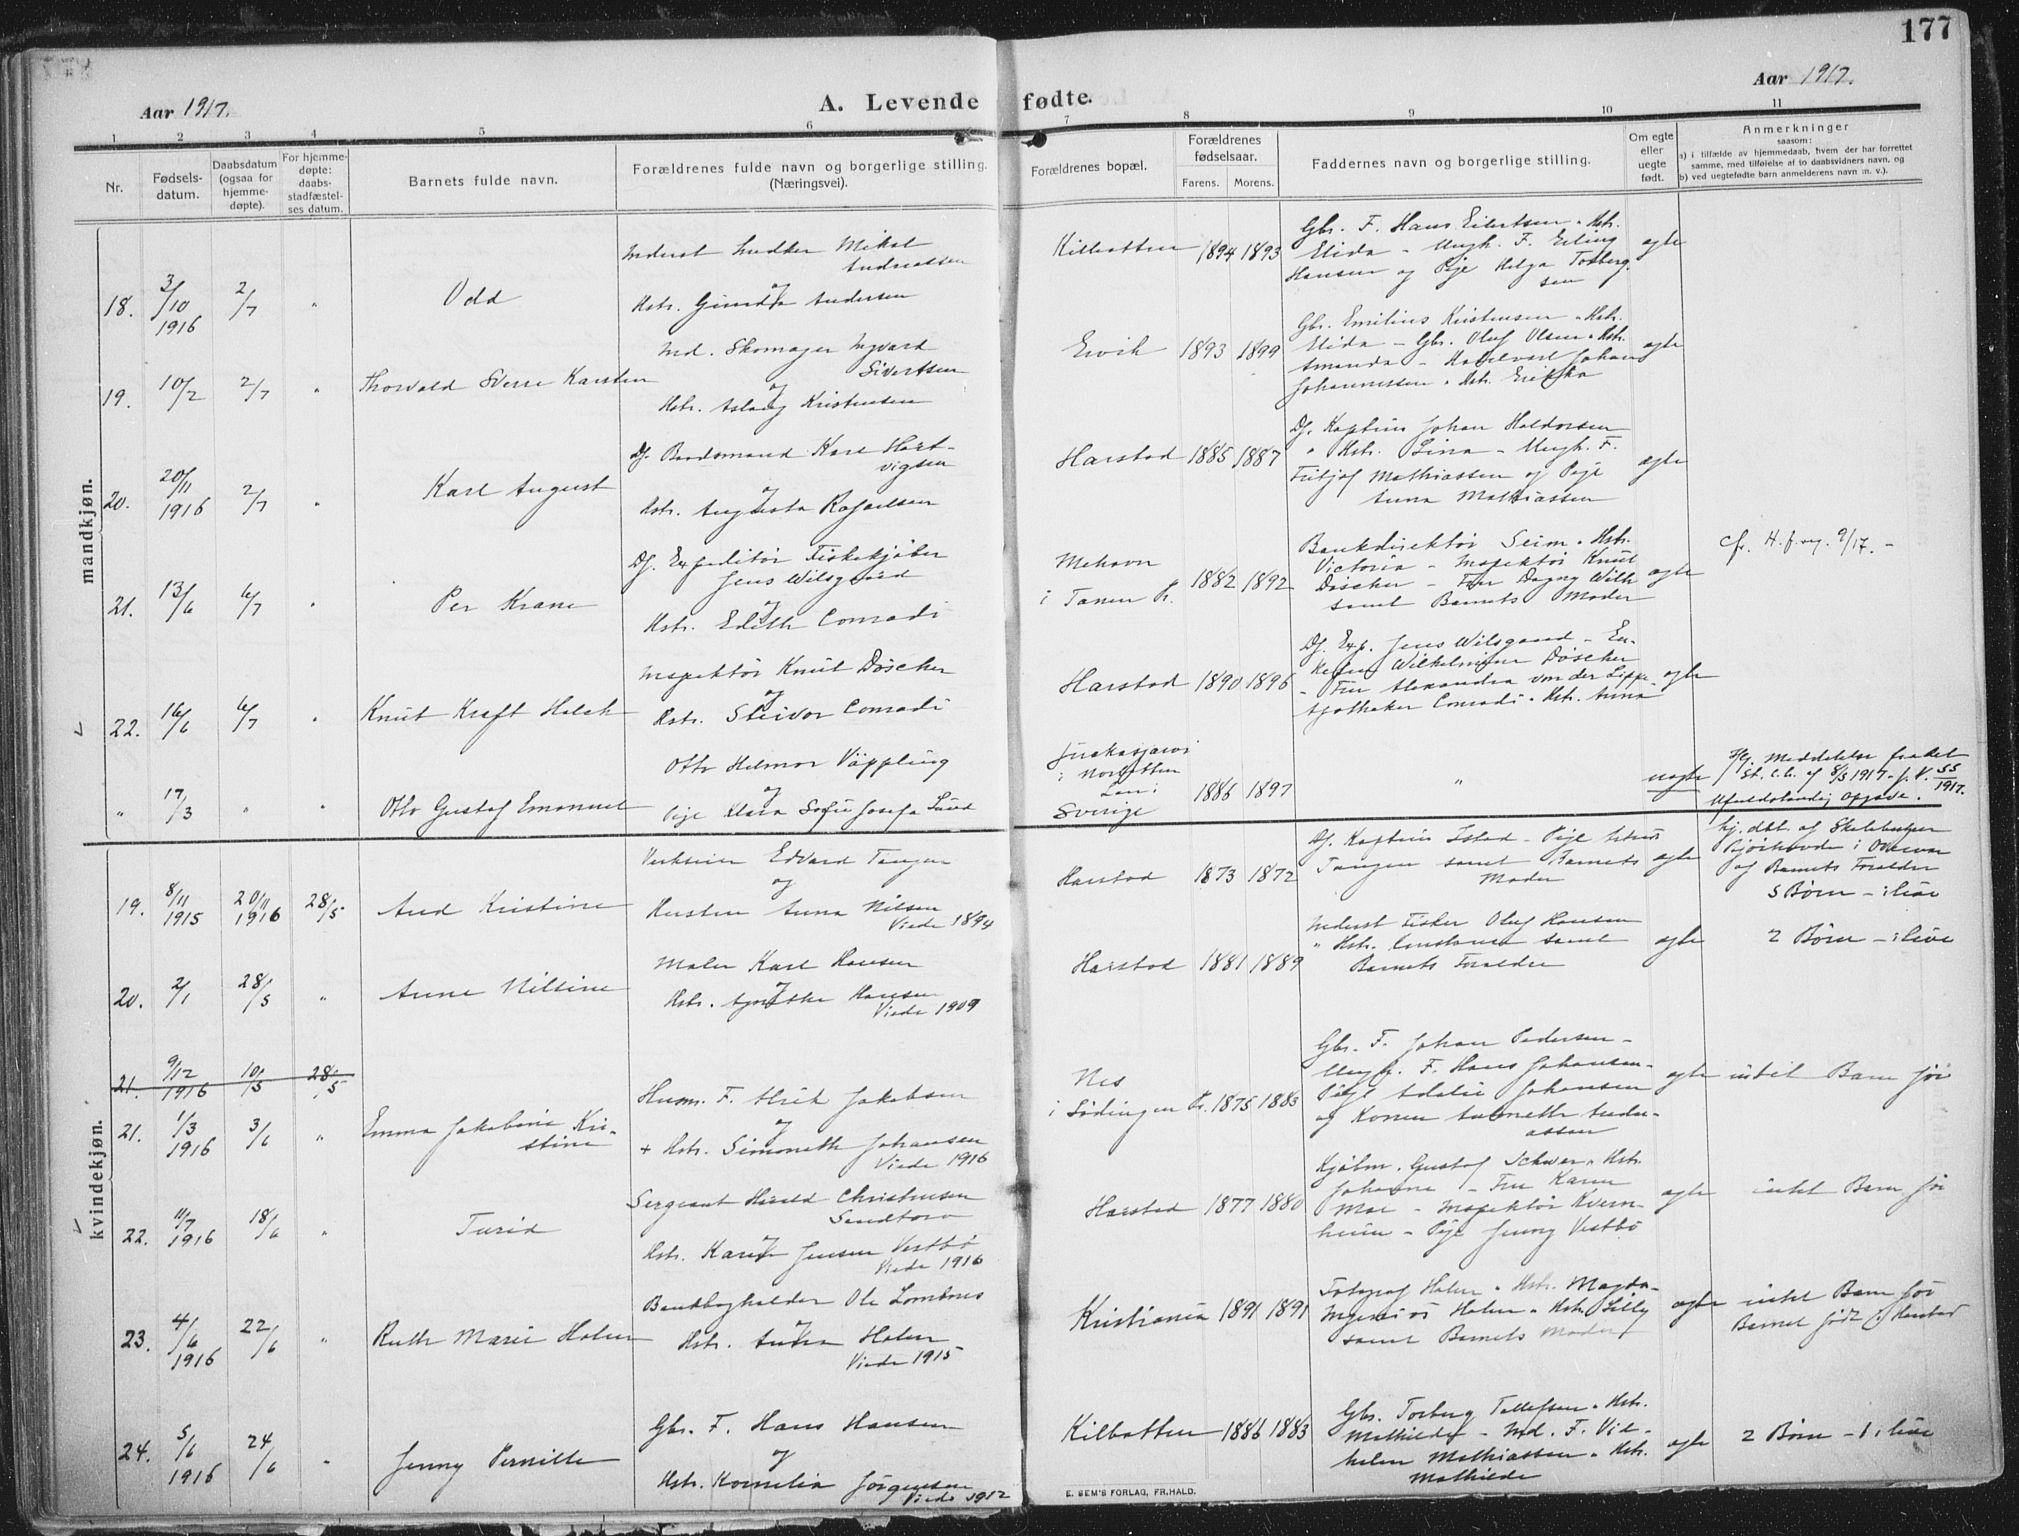 177
Aar 1917.
A. Levende fødte.
Aar 1917.
1 2 3 4 5 6 7 8 9 10 11
Nr.
Fødsels-
datum.
Daabsdatum
(ogsaa for
hjemme-
døpte).
For hjemme-
døpte:
daabs-
stadfæstel-
ses datum.
Barnets fulde navn.
Forældrenes fulde navn og borgerlige stilling.
(Næringsvei).
Forældrenes bopæl.
Forældrenes
fødselsaar.
Farens. Morens.
Faddernes navn og borgerlige stilling.
Om egte
eller
uegte
født.
Anmerkninger
saasom:
a) i tilfælde av hjemmedaab, hvem der har forrettet
samme, med tilføielse af to daabsvidners navn, og
b) ved uegtefødte børn anmelderens navn m. v.).
mandkjøn.
18. 3/10 1916 2/7 " Odd
Inderst Mikal
Andreassen
og
Hstr. Andersen
Kilbotten 1894 1893
Gbr. F. Hans Eilertsen & Hstr.
Elida – Ungk. F. Erling
Hansen og Pige Helga Torberg-
sen
egte
19. 10/2 2/7 " Thorvald Sverre Karsten
Ind. Skomager Ingvard
Sivertsen
og
Hstr. Aslaug Kristensen
Ervik 1893 1899
Gbr. Emilius Kristensen & Hstr.
Elida – Gbr. Oluf Olsen & Hstr.
Amanda – Johan
Johannessen & Hstr. Erikka
egte
20. 20/11 1916 2/7 " Karl August
Df. Baadsmand Karl Hart-
vigsen
og
Hstr. Augusta Rafaelsen
Harstad 1885 1887
Df. Kaptein Johan Haldorsen
& Hstr. Lina – Ungk. F.
Fritjof Mathiassen og Pige
Anna Mathiassen
egte
21. 13/6 6/7 " Per Krane
Df. Expeditør Fiskekjøber
Jens Wilsgaard
og
Hstr. Edith Conradi
Mehavn
i Tanen P. 1882 1892
Bankdirektør Seim & Hstr.
Victoria – Inspektør Knut
Døscher – Fru Dagny With
samt Barnets Moder
egte
cfr. H. f. og. 9/17. –
22. 16/6 6/7 " Knut Kraft Holck
Inspektør Knut Døscher
og
Hstr. Steivor Conradi
Harstad 1890 1896
Df. Exp. Jens Wilsgaard – En-
kefru Wilhelmine Døscher
– Fru Alexandra von der Lippe
Apotheker Conradi & Hstr. Anna
egte
" 17/3 " " Otto Gustaf Emanuel
Otto Helmer Väppling
og
Pige Klara Sofie Josefa Lund
Jukkasjarvi
i Norbotten
Len i
Sverige 1886 1897
"
uegte
Iflg. Meddelelse fra det
St. C. B. af 8/5 1917 – J. N. 55/1917.
Ufuldstændig Opgave.
kvindekjøn.
19. 8/11 1915 20/11 1916 28/5 Aud Kristine
Verkseier Edvard Tangen
og
Hustru Anna Nilsen
Viede 1894
Harstad 1873 1872
Df. Kaptein – Pige
Tangen samt Barnets
Moder
egte
hj. dbt. af Skolebestyrer
Bjørhovde i
af Barnets Forældre
5 Børn – i live
20. 2/1 28/5 " Anne Nilsine
Maler Karl Hansen
og
Hstr. Agnethe Hansen
Viede 1909
Harstad 1881 1889
Inderst Fisker Oluf Hansen
& Hstr. Constance samt
Barnets Forældre
egte
2 Børn – i live
21. 9/12 1916 10/5 28/5
21. 1/3 1916 3/6 " Emma Jakobine Kri-
stine
Husm. F. Alrik Jakobsen
og
+ Hstr. Simoneth Johansen
Viede 1916
Nes
i Lødingen P. 1875 1883
Gbr. F. Johan Pedersen –
Ungk. F. Hans Johansen –
Pige Adolie Johansen
og Konen Andre-
assen
egte
intet Barn før
22. 11/7 1916 18/6 " Turid
Sergeant Harald Christensen
Sandtorv
og
Hstr. Karin Jensen Vestbø
Viede 1916
Harstad 1877 1880
Kjøbm. Gustaf & Hstr.
Johanne – Fru Karen
Moe – Inspektør Kvern-
heim – Pige Jenny Vestbø
egte
intet Barn før
23. 4/6 1916 22/6 " Ruth Marie Holen
Bandbogholder Ole
og
Hstr. Holen
Viede 1915
Kristiania 1891 1891
Fotograf Holen & Hstr. Magda –
Ingeniør Holen & Hstr. Lilly
samt Barnets Moder
egte
intet Barn før
Barnet født i Harstad
24. 5/6 1916 24/6 " Jenny Pernille
Gbr. F. Hans Hansen
og
Hstr. Kornelia Jørgensen
Viede 1912
Kilbotten 1886 1883
Gbr. Torberg Tollefsen & Hstr.
Mathilde – Ind. F. Vil-
helm Mathiassen & Hstr.
Mathilde
egte
2 Børn – 1 i live
E. SEM'S FORLAG, FR.HALD.